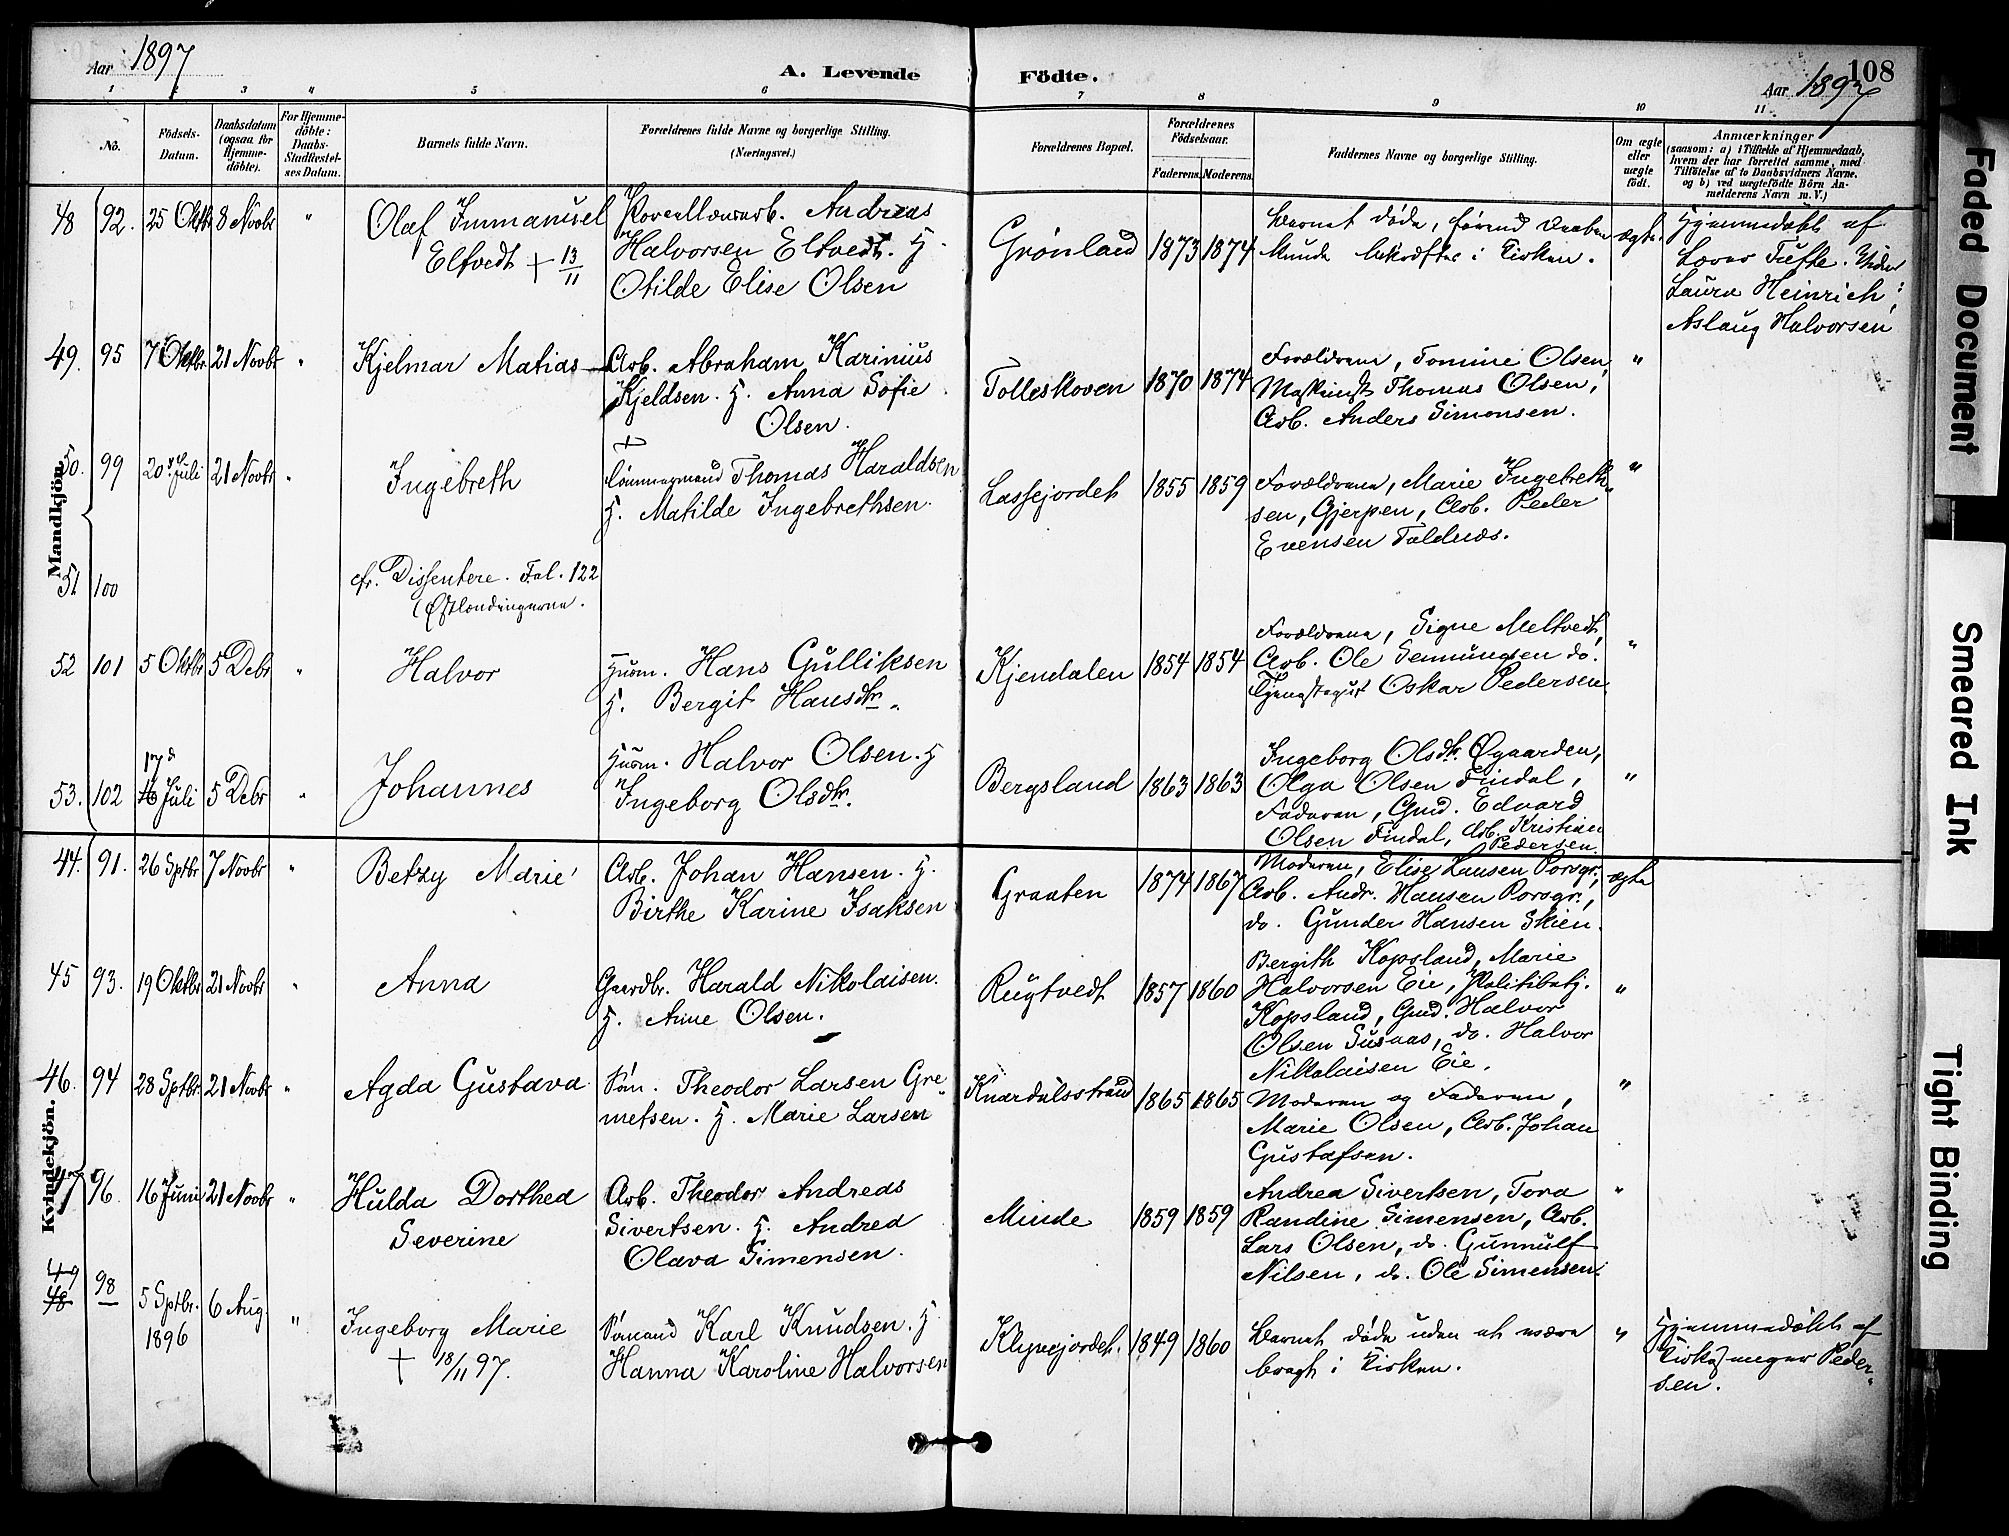 Aar 1897
A. Levende Födte.
Aar 1897
108
1 2 3 4 5 6 7 8 9 10 11
No.
Födsels-Datum.
Daabsdatum (ogsaa for Hjemme-döbte).
For Hjemme-döbte: Daabs-Stadfæstel-ses Datum.
Barnets fulde Navn.
Forældrenes fulde Navne og borgerlige Stilling. (Næringsvei.)
Forældrenes Bopæl.
Forældrenes Födselsaar.
Faderens. Moderens.
Faddernes Navne og borgerlige Stilling.
Om ægte eller uægte födt.
Anmærkninger
(saasom: a) i Tilfælde af Hjemmedaab, hvem der har forrettet samme, med Tilföielse af to Daabsvidners Navne, og b) ved uægtefödte Börn An-melderens Navn m. V.)
Mandkjön.
48 92. 25 Oktb 8 Novbr " Olaf Immanuel
Elfvedt + 13/11
Porcellænsarb. Andreas
Halvorsen Elfvedt. H.
Otilde Elise Olsen
Grønland 1873 1874
Barnet døde, førend Daaben
kunde bekræftes i Kirken.
ægte.
Hjemmedøbt af
Lærer Tufte. Vidner
Laura Heinrich;
Aslaug Halvorsen
49. 95 7 Oktbr. 21 Novbr " Kjelmar Matias
Arb. Abraham Karinius
Kjeldsen. H. Anna Sofie
Olsen.
Tolleskoven 1870 1874
Forældrene, Tomine Olsen,
Maskinist Thomas Olsen,
Arb. Anders Simonsen.
"
50. 99 20 Juli 21 Novbr " Ingebreth
+
Tømmermand Thomas Haraldsen
H. Matilde Ingebrethsen.
Lassejordet 1855 1859
Forældrene, Marie Ingebreth-
sen, Gjerpen, Arb. Peder
Evensen Foldnæs.
"
51 100 cfr. Dissentere. Fol. 122
(Østlændingerne.
52 101 5 Oktbr 5 Debr " Halvor
Husm. Hans Gulliksen
H. Bergit Hansdtr.
Kjendalen 1854 1854
Forældrene, Signe Meltvedt,
Arb. Ole Semundsen do.
Tjenestegut Oskar Pedersen
"
53. 102 17d 16 Juli 5 Debr " Johannes
Husm. Halvor Olsen. H
Ingeborg Olsdtr.
Bergsland 1863 1863
Ingeborg Olsdtr. Øgaarden,
Olga Olsen Findal,
Faderen, Gmd. Edvard
Olsen Findal, Arb. Kristian
Pedersen.
"
Kvindekjön.
44. 91. 26 Sptbr 7 Novbr " Betzy Marie
Arb. Johan Hansen. H.
Birthe Karine Isaksen
Graaten 1874 1867
Moderen, Elise Hansen Porsgr.,
Arb. Andr. Hansen Porsgr.,
do. Gunder Hansen Skien.
ægte
45 93. 19 Oktbr 21 Novbr " Anna
Gaardbr. Harald Nikolaisen.
H. Anne Olsen.
Rugtvedt 1857 1860
Bergith Kopsland, Marie
Halvorsen Eie, Politibetj.
Kopsland, Gmd. Halvor
Olsen Susaas, do. Halvor
Nikolaisen Eie.
"
46. 94 28 Sptbr. 21 Novbr " Agda Gustava
Søm. Theodor Larsen Gre-
metsen. H. Marie Larsen
Knardalsstrand 1865 1865
Moderen og Faderen,
Marie Olsen, Arb. Johan
Gustafsen.
"
47 96 16 Juni 21 Novbr " Hulda Dorthea
Severine
Arb. Theodor Andreas
Sivertsen. H. Andrea
Olava Simensen.
Minde 1859 1859
Andrea Sivertsen, Tora
Randine Simensen, Arb.
Lars Olsen, do. Gunnulf
Nilsen, do. Ole Simensen.
"
49 48 98 5 Sptbr. 1896 6 Aug. " Ingeborg Marie
+ 18/11 97.
Sømand Karl Knudsen. H
Hanna Karoline Halvorsen
Klyvejordet. 1849 1860
Barnet døde uden at være
bragt i Kirken.
"
Hjemmedøbt af
Kirkesanger Peder-
sen.
Faded Document
Smeared Ink
Tight Binding